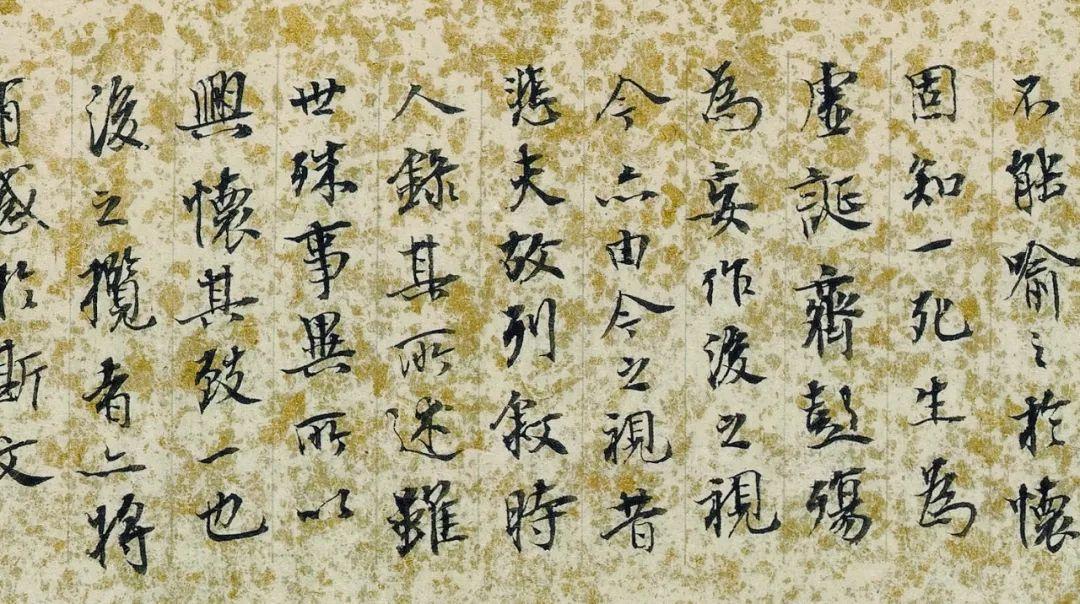 不能喻之於懷
固知一死生為
虛誕齊彭殤
為妄作後之視
今亦由今之視昔
悲夫故列敘時
人錄其所述雖
世殊事異所以
興懷其致一也
後之攬者亦將
有感於斯文